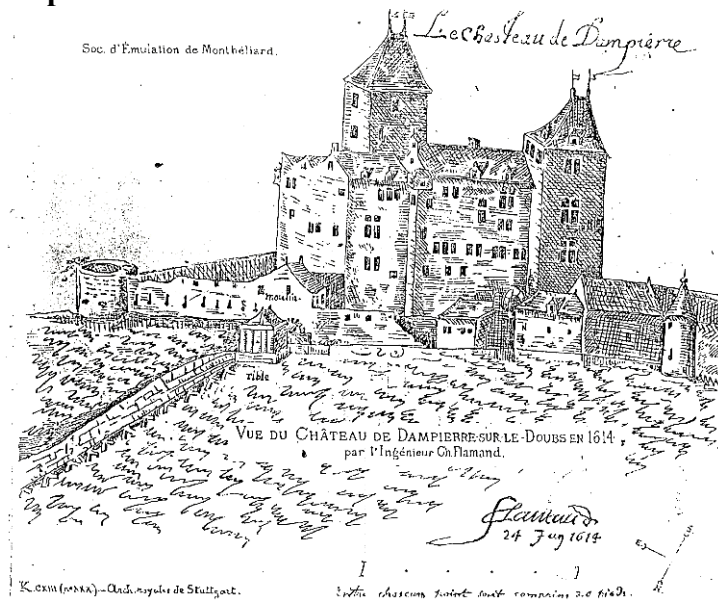 Soc. d'Émulation de Montbéliard.
Le Chasteau de Dampierre
moulin
rible
VUE DU CHÂTEAU DE DAMPIERRE-SUR-LE-DOUBS EN 1614
par l'Ingénieur Ch. Flamand.
Flamand
24 1614
K. CXIII Arch. royales de Stuttgart.
Entre chascun point sont comprins 30 pieds.